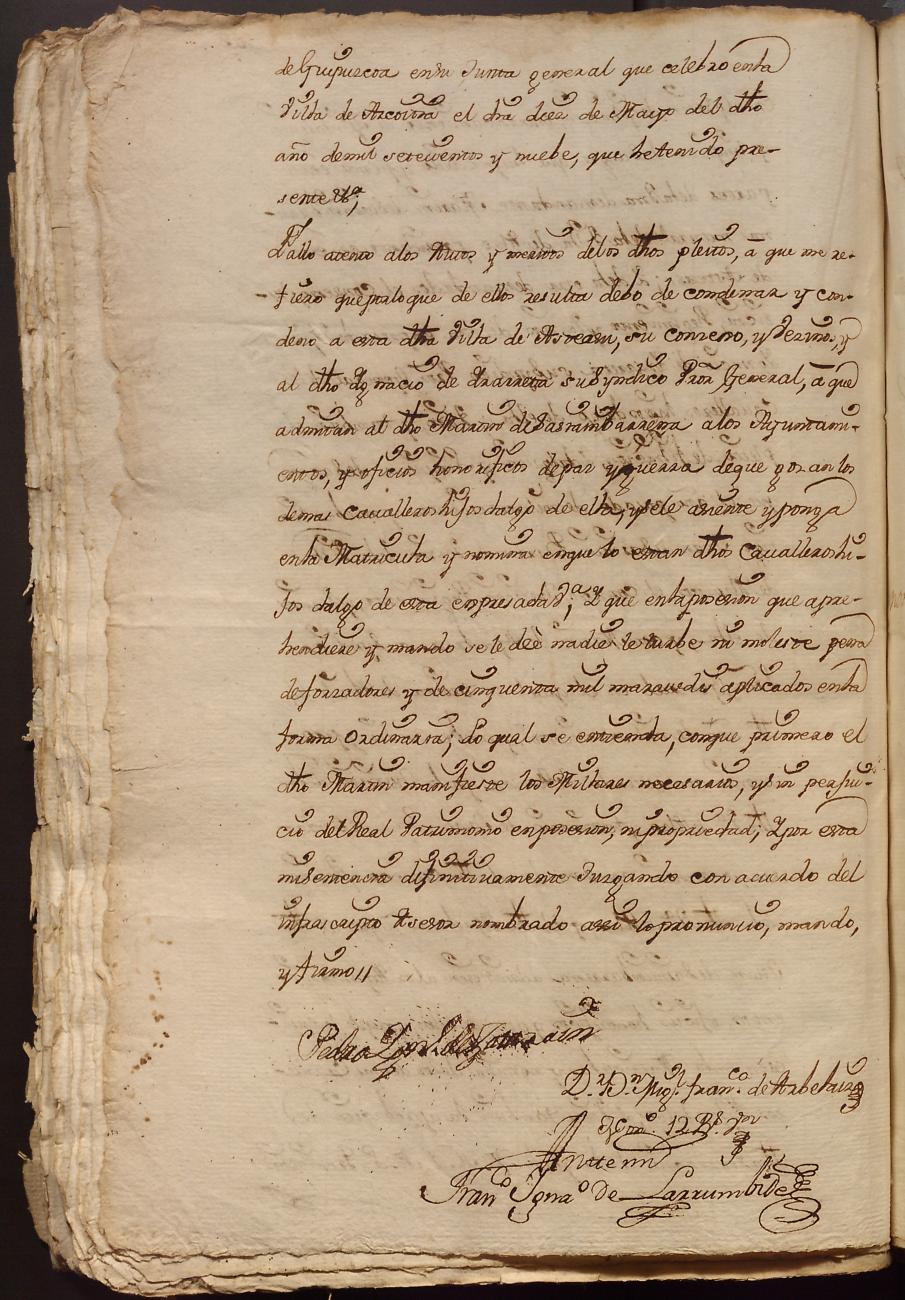 de Guipuzcoa en su Junta general que celebro enla
Villa de Azcoitia el dia diez de Mayo del dho
año demil setecientos y nuebe, que hetenido pre-
sente &a;
Fallo atento alos Autos y meritos delos dhos pleitos, â que me re-
fiero que por lo que de ellos resulta debo de condenar y con-
deno a esta dha Villa de Asteasu, su Conzejo, y Vezinos, y
al dho Ygnacio de Yrarreta su Syndico Pror General, â que
admitan al dho Martin de Sasiambarrena a los Ayuntami-
entos, y oficios honorificos depaz y guerra deque gozan los
demas Cavalleros hijos dalgo de ella, y sele asiente y ponga
enla Matricula y nomina enque lo estan dhos Cavalleros hi-
jos dalgo de esta expresada Va, Y que enlaposesion que apre-
hendiere y mando se le deè nadie le turbe ni moleste pena
de forzadores y de cinquenta mil maravedis aplicados enla
forma Ordinaria; Lo qual se entienda, conque primero el
dho Martin manifieste los Millares necesarios, y sin perjui-
cio del Real Patrimonio en posesion, ni propriedad; Y por esta
mi Sentencia difinitivamente Juzgando con acuerdo del
infrascripto Asesor nombrado assi lo pronuncio, mando,
y firmo //
Pedro
Dr. Dn. Migl. franco. de Arbelaiz
12 Rs
Ante mi
Franco Ignao de Larrumbide